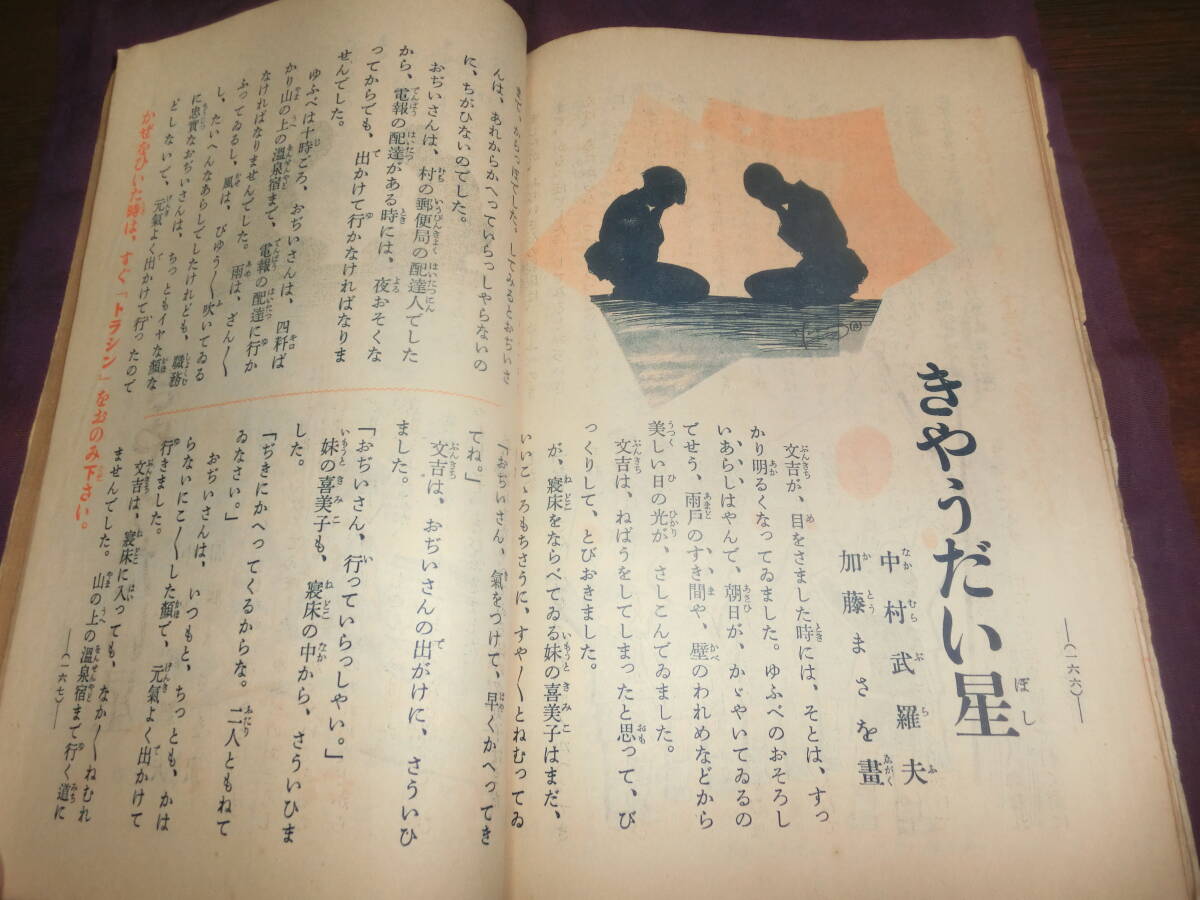 —(一六六)—
きやうだい星
中村武羅夫
加藤まさを畫
文吉が、目をさました時には、そとは、すっ
かり明るくなってゐました。ゆふべのおそろし
いあらしはやんで、朝日が、かゞやいてゐるの
でせう、雨戸のすき間や、壁のわれめなどから
美しい日の光が、さしこんでゐました。
文吉は、ねばうをしてしまったと思って、び
っくりして、とびおきました。
が、寢床をならべてゐる妹の喜美子はまだ、
いいこゝろもちさうに、すや〳〵とねむってゐ
まて、からっぽでした。してみるとおぢいさ
んは、あれからかへっていらっしやらないの
に、ちがひないのでした。
おぢいさんは、村の郵便局の配達人でした
から、電報の配達がある時には、夜おそくな
ってからでも、出かけて行かなければなりま
せんでした。
ゆふべは十時ごろ、おぢいさんは、四粁ば
かり山の上の溫泉宿まで、電報の配達に行か
なければなりませんでした。雨は、ざん〳〵
ふってゐるし、風は、びゆう〳〵吹いてゐる
し、たいへんなあらしでしたけれども、職務
に忠實なおぢいさんは、ちっともイヤな顏な
どしないで、元氣よく出かけて行ったので
「おぢいさん、氣をつけて、早くかへってき
てね。」
文吉は、おぢいさんの出がけに、さういひ
ました。
「おぢいさん、行っていらっしやい。」
妹の喜美子も、寢床の中から、さういひま
した。
「ぢきにかへってくるからな。二人ともねて
ゐなさい。」
おぢいさんは、いつもと、ちっとも、かは
らないにこ〳〵した顏で、元氣よく出かけて
行きました。
文吉は、寢床に入っても、なか〳〵ねむれ
ませんでした。山の上の溫泉宿まで行く道に
かぜをひいた時は、すぐ「トラシン」をおのみ下さい。
—(一六七)—